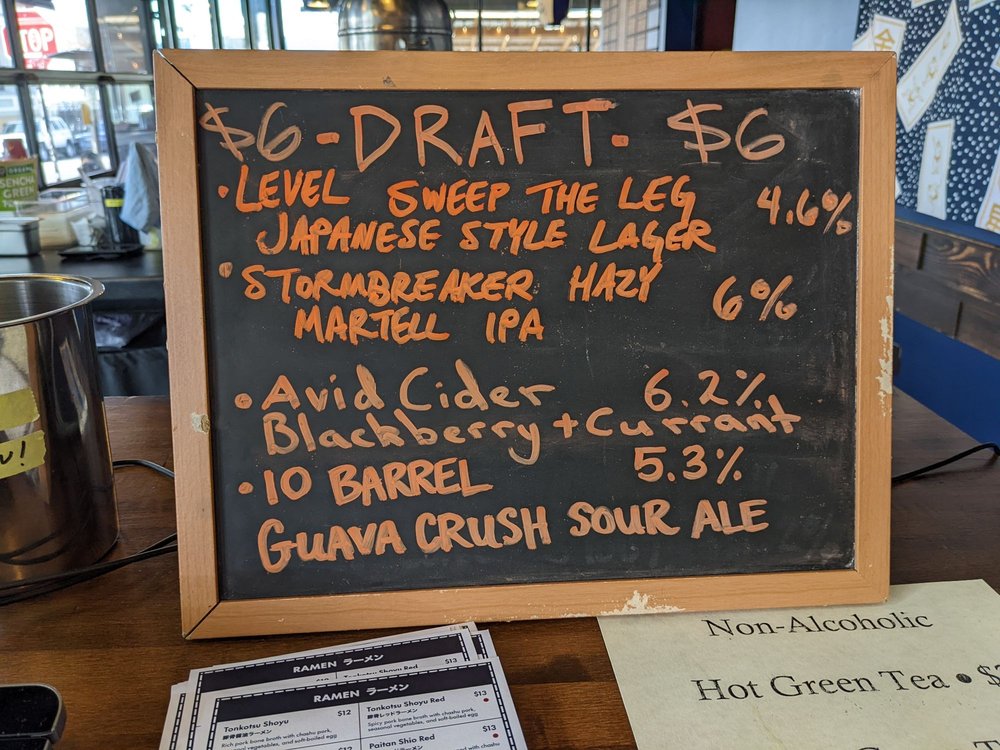 $6 - DRAFT - $6
• LEVEL SWEEP THE LEG 4.6%
JAPANESE STYLE LAGER
• STORMBREAKER HAZY 6%
MARTELL IPA
• Avid Cider 6.2%
Blackberry + Currant
• 10 BARREL 5.3%
GUAVA CRUSH SOUR ALE
Non-Alcoholic
Hot Green Tea •
RAMEN ラーメン
Tonkotsu Shoyu Red $13
RAMEN ラーメン
Tonkotsu Shoyu $12
豚骨醤油ラーメン
Rich pork bone broth with chashu pork,
seasonal vegetables, and soft-boiled egg
Tonkotsu Shoyu Red $13
豚骨レッドラーメン
Spicy pork bone broth with chashu pork,
seasonal vegetables, and soft-boiled egg
$12
Paitan Shio Red $13
SENCHA
GREEN